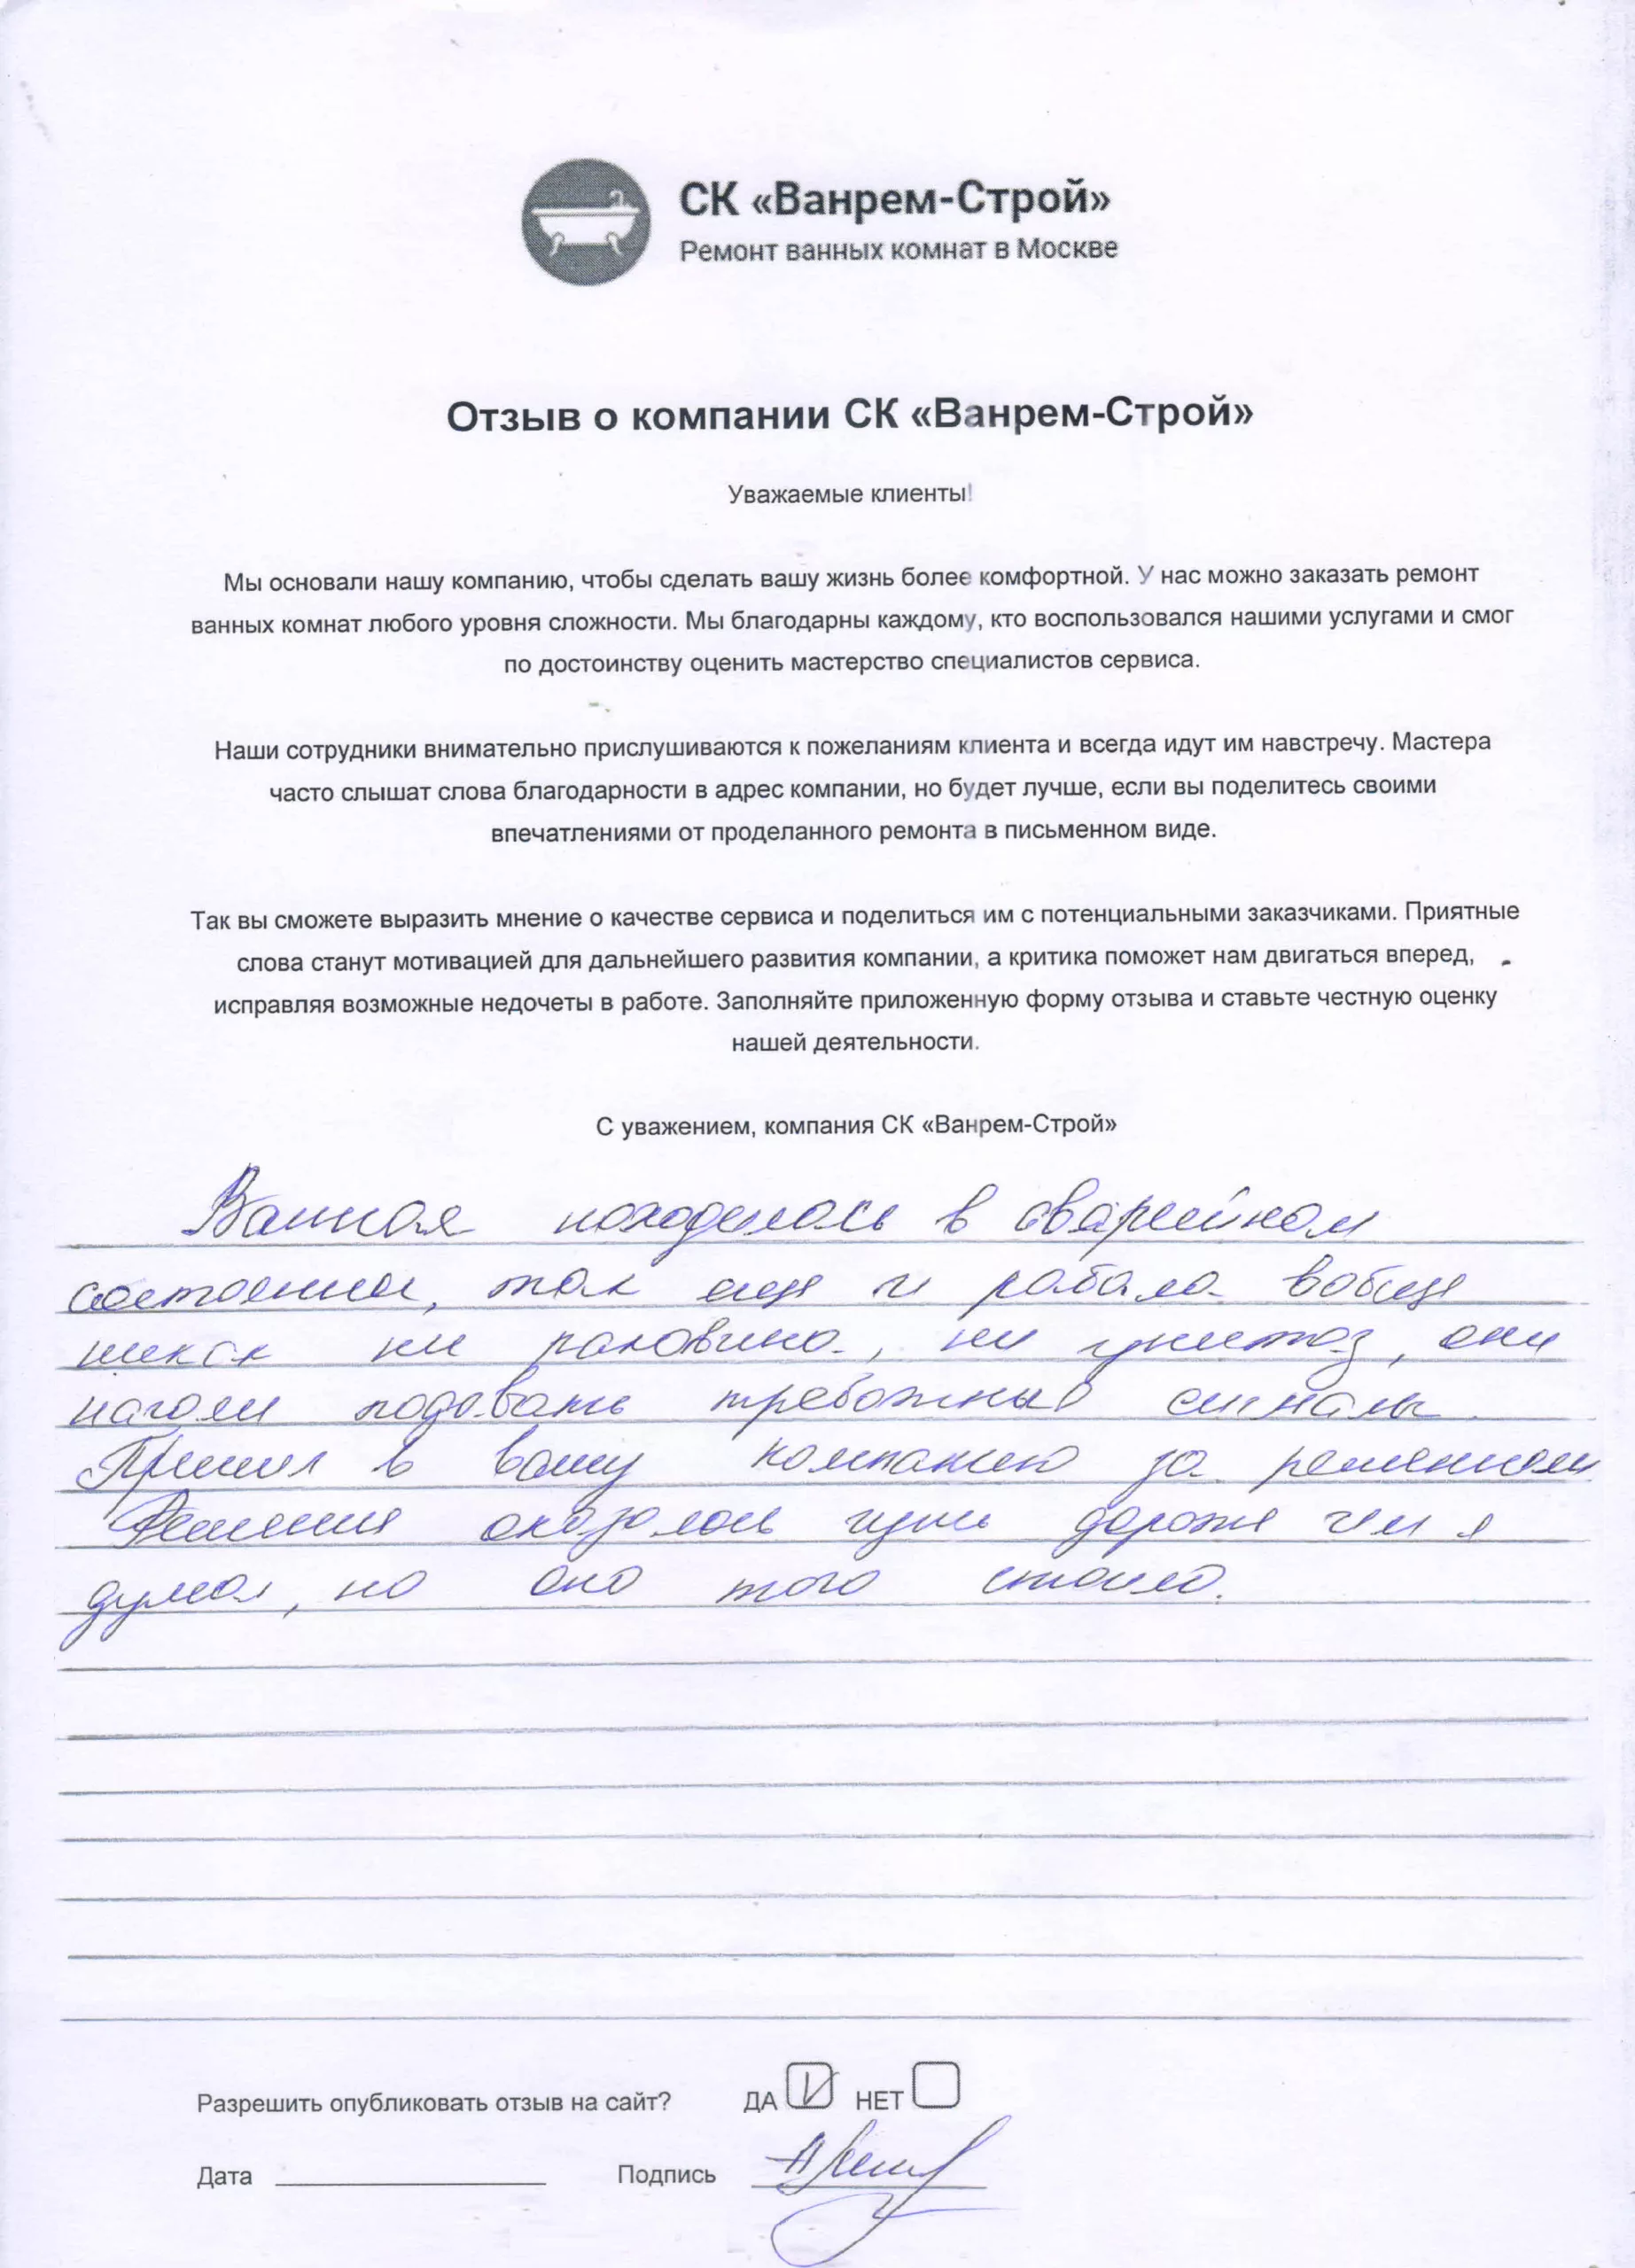 СК «Ванрем-Строй»
Ремонт ванных комнат в Москве
Отзыв о компании СК «Ванрем-Строй»
Уважаемые клиенты!
Мы основали нашу компанию, чтобы сделать вашу жизнь более комфортной. У нас можно заказать ремонт
ванных комнат любого уровня сложности. Мы благодарны каждому, кто воспользовался нашими услугами и смог
по достоинству оценить мастерство специалистов сервиса.
Наши сотрудники внимательно прислушиваются к пожеланиям клиента и всегда идут им навстречу. Мастера
часто слышат слова благодарности в адрес компании, но будет лучше, если вы поделитесь своими
впечатлениями от проделанного ремонта в письменном виде.
Так вы сможете выразить мнение о качестве сервиса и поделиться им с потенциальными заказчиками. Приятные
слова станут мотивацией для дальнейшего развития компании, а критика поможет нам двигаться вперед,
исправляя возможные недочеты в работе. Заполняйте приложенную форму отзыва и ставьте честную оценку
нашей деятельности.
С уважением, компания СК «Ванрем-Строй»
Ванная находилась в аварийном
состоянии, так еще и вобще
никак ни раковина, ни унитаз, они
начали подавать тревожные сигналы.
Пришел в вашу компанию за решением
Решения оказалось чуть дороже чем я
думал, но оно того стоило.
Разрешить опубликовать отзыв на сайт? ДА НЕТ
Дата Подпись